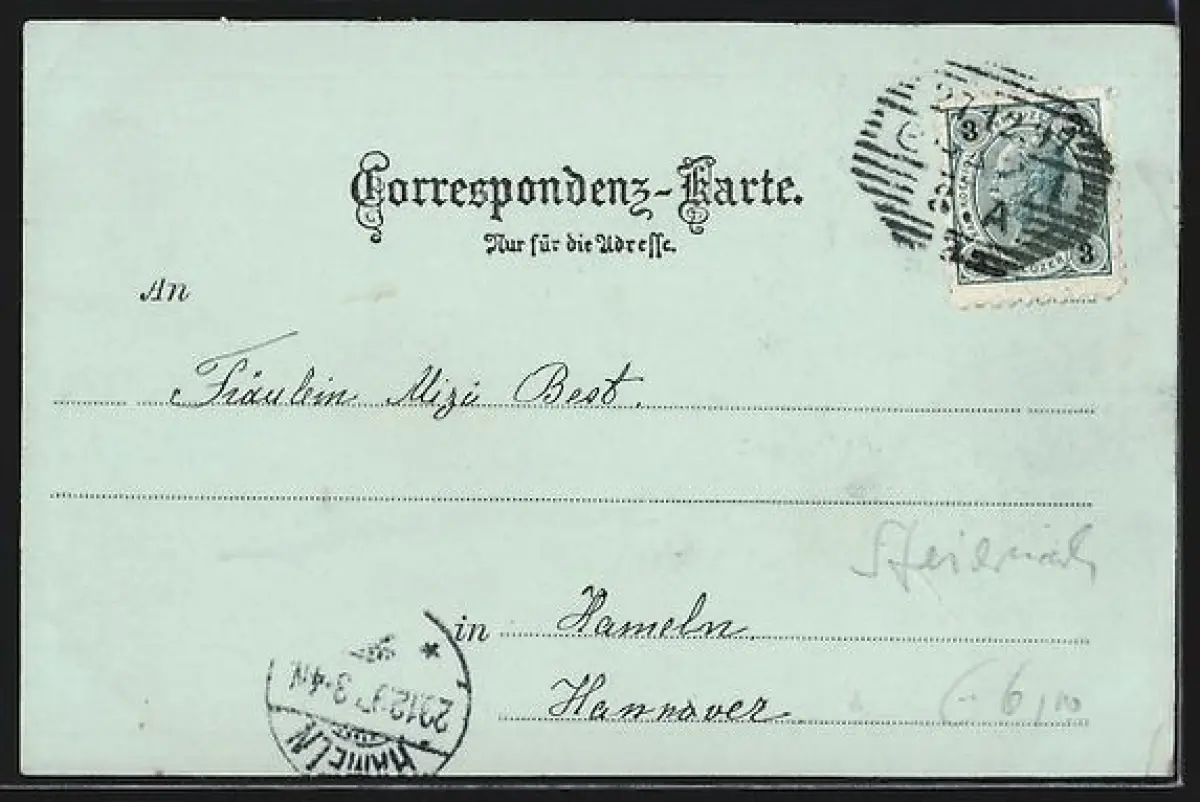 Correspondenz-Karte.
Nur für die Adresse.
An
Fräulein Mizi Best.
in Hameln
Hannover
3
3
A
HAMELN
29.12.97
3-4N
6,00